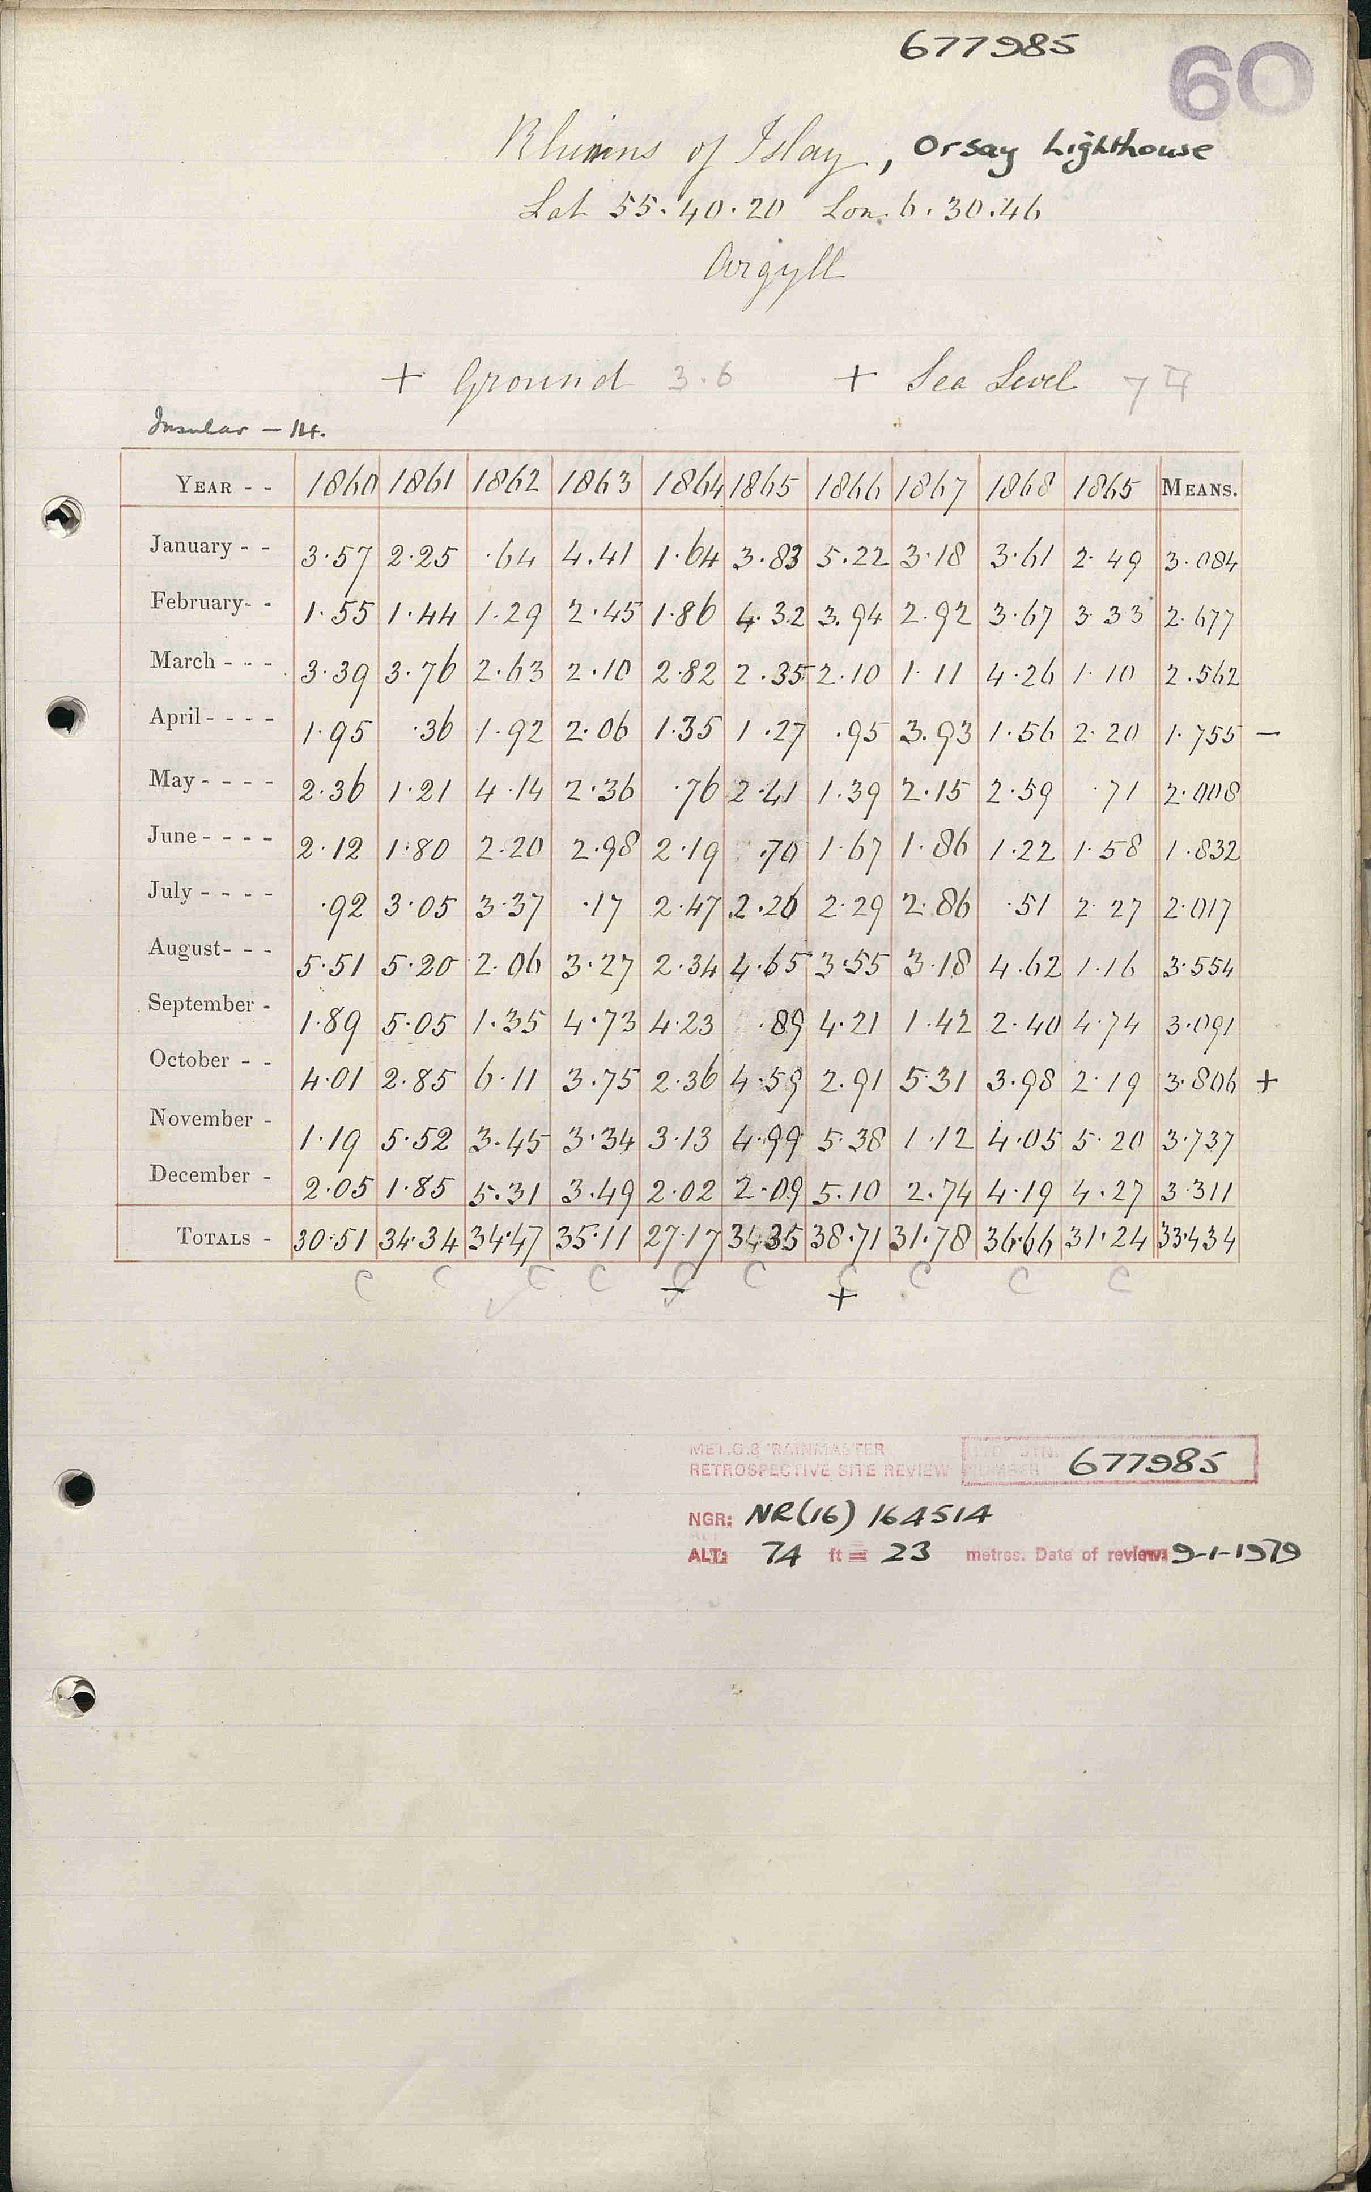 677985
60
Rhinns of Islay, Orsay Lighthouse
Lat 55.40.20 Lon. 6.30.46
Argyll
+ Ground 3.6 + Sea Level 74
Insular - 14.
YEAR - - 1860 1861 1862 1863 1864 1865 1866 1867 1868 1865 MEANS.
January - - 3.57 2.25 .64 4.41 1.64 3.83 5.22 3.18 3.61 2.49 3.084
February - - 1.55 1.44 1.29 2.45 1.86 4.32 3.94 2.92 3.67 3.33 2.677
March - - - 3.39 3.76 2.63 2.10 2.82 2.35 2.10 1.11 4.26 1.10 2.562
April - - - - 1.95 .36 1.92 2.06 1.35 1.27 .95 3.93 1.56 2.20 1.755 -
May - - - - 2.36 1.21 4.14 2.36 .76 2.41 1.39 2.15 2.59 .71 2.008
June - - - - 2.12 1.80 2.20 2.98 2.19 .70 1.67 1.86 1.22 1.58 1.832
July - - - - .92 3.05 3.37 .17 2.47 2.26 2.29 2.86 .51 2.27 2.017
August - - - 5.51 5.20 2.06 3.27 2.34 4.65 3.55 3.18 4.62 1.16 3.554
September - 1.89 5.05 1.35 4.73 4.23 .89 4.21 1.42 2.40 4.74 3.091
October - - 4.01 2.85 6.11 3.75 2.36 4.59 2.91 5.31 3.98 2.19 3.806 +
November - 1.19 5.52 3.45 3.34 3.13 4.99 5.38 1.12 4.05 5.20 3.737
December - 2.05 1.85 5.31 3.49 2.02 2.09 5.10 2.74 4.19 4.27 3.311
TOTALS - 30.51 34.34 34.47 35.11 27.17 34.35 38.71 31.78 36.66 31.24 33.434
C C C C C C C C C C
- +
MET.O.8 'RAINMASTER
RETROSPECTIVE SITE REVIEW STN. NUMBER 677985
NGR: NR(16) 164514
ALT: 74 ft = 23 metres. Date of review: 9-1-1979